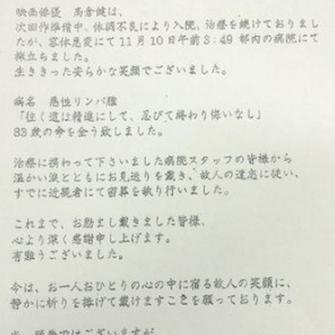 映画俳優 高倉健は、
次回作準備中、体調不良により入院、治療を続けておりまし
たが、容体急変にて11月10日午前3:49都内の病院にて
旅立ちました。
生ききった安らかな笑顔でございました。
病名 悪性リンパ腫
「往く道は精進にして、忍びて終わり悔いなし」
83歳の命を全う致しました。
治療に携わって下さいました病院スタッフの皆様から
温かい涙とともにお見送りを戴き、故人の遺志に従い、
すでに近親者にて密葬を執り行いました。
これまで、お励まし戴きました皆様、
心より深く感謝申し上げます。
有難うございました。
今は、お一人おひとりの心の中に宿る故人の笑顔に、
静かに祈りを捧げて戴けますことを願っております。